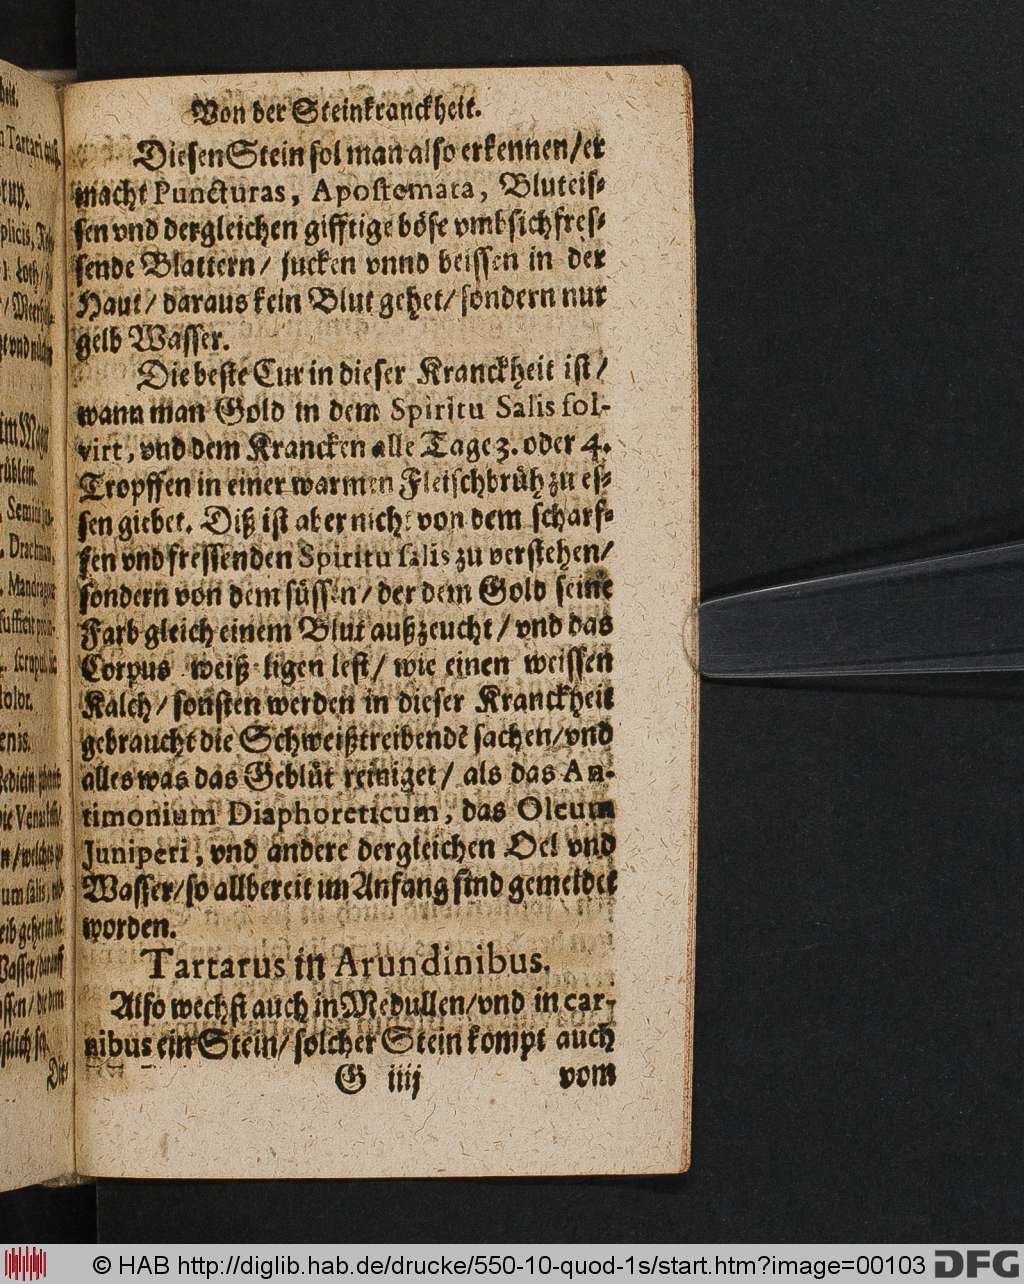 Von der Steinkranckheit.
Diesen Stein sol man also erkennen/ er
macht Puncturas, Apostemata, Bluteis⸗
sen vnd dergleichen gifftige böse vmb sich fres⸗
sende Blattern/ jucken vnnd beissen in der
Haut/ daraus kein Blut gehet/ sondern nur
gelb Wasser.
Die beste Cur in dieser Kranckheit ist/
wann man Gold in dem Spiritu Salis sol-
virt, vnd dem Krancken alle Tage 3. oder 4.
Tropffen in einer warmen Fleischbrüh zu es⸗
sen giebet. Diß ist aber nicht von dem scharf⸗
fen vnd fressenden Spiritu salis zu verstehen/
sondern von dem süssen/ der dem Gold seine
Farb gleich einem Blut außzeucht/ vnd das
Corpus weiß ligen lest/ wie einen weissen
Kalch/ sonsten werden in dieser Kranckheit
gebraucht die Schweißtreibendē sachen/ vnd
alles was das Geblüt reiniget/ als das An-
timonium Diaphoreticum, das Oleum
Juniperi, vnd andere dergleichen Oel vnd
Wasser/ so allbereit im Anfang sind gemeldet
worden.
Tartarus in Arundinibus.
Also wechst auch in Medullen/ vnd in car-
nibus ein Stein/ solcher Stein kompt auch
G iiij vom
© HAB http://diglib.hab.de/drucke/550-10-quod-1s/start.htm?image=00103 DFG